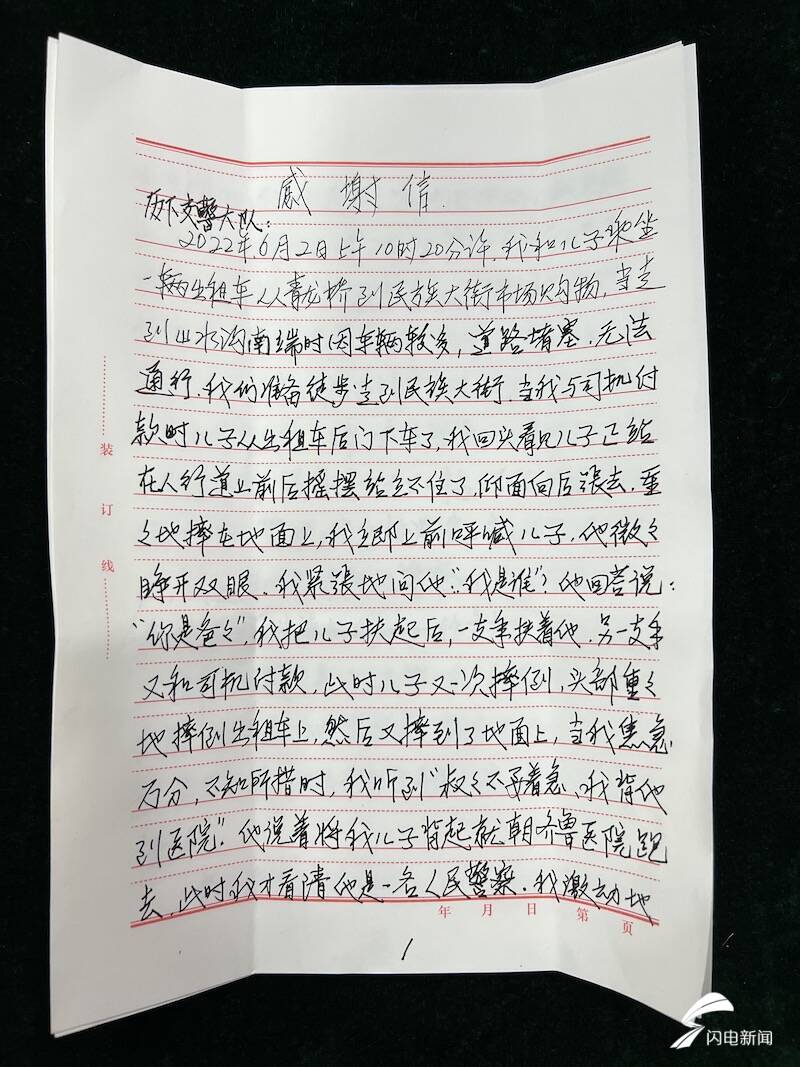 感谢信
历下交警大队:
2022年6月2日上午10时20分许,我和儿子乘坐
一辆出租车从青龙桥到民族大街市场购物,当走
到山水沟南端时因车辆较多,道路堵塞,无法
通行,我们准备徒步走到民族大街,当我与司机付
款时儿子从出租车后门下车了,我回头看见儿子正站
在人行道上前后摇摆站立不住了,仰面向后张去,重
々地摔在地面上,我立即上前呼喊儿子,他微々
睁开双眼,我紧张地问他:“我是谁”?他回答说:
“你是爸々”,我把儿子扶起后,一支手扶着他,另一支手
又和司机付款,此时儿子又一次摔倒,头部重々
地摔倒出租车上,然后又摔到了地面上,当我焦急
万分,不知所措时,我听到“叔々不要着急,我背他
到医院”。他说着将我儿子背起就朝齐鲁医院跑
去,此时我才看清他是一名人民警察。我激动地
装
订
线
年 月 日 第 页
1
闪电新闻